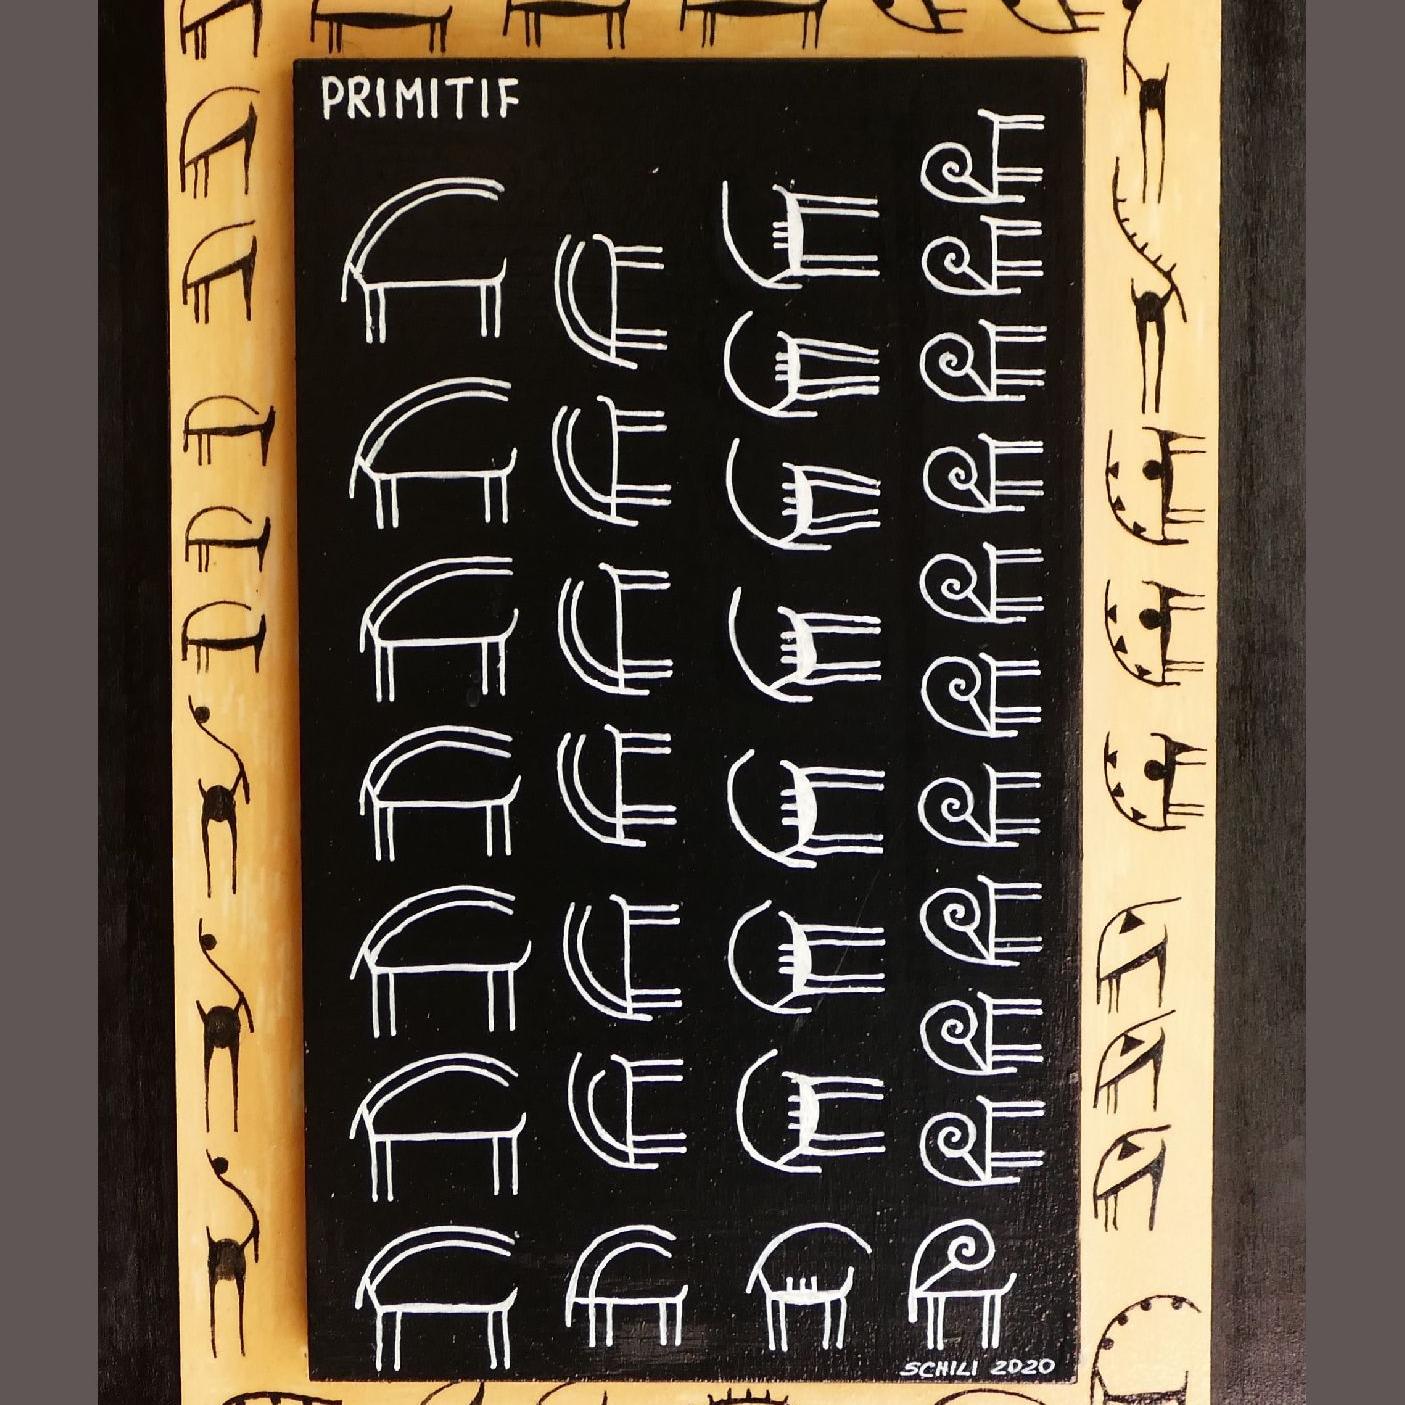 PRIMITIF
SCHILI 2020